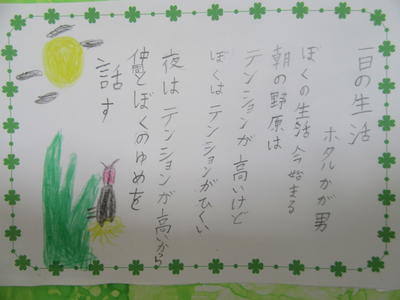 一日の生活
ホタルかが男
ぼくの生活今始まる
朝の野原は
テンションが高いけど
ぼくはテンションがひくい
夜はテンションが高いから
仲間とぼくのゆめを
話す